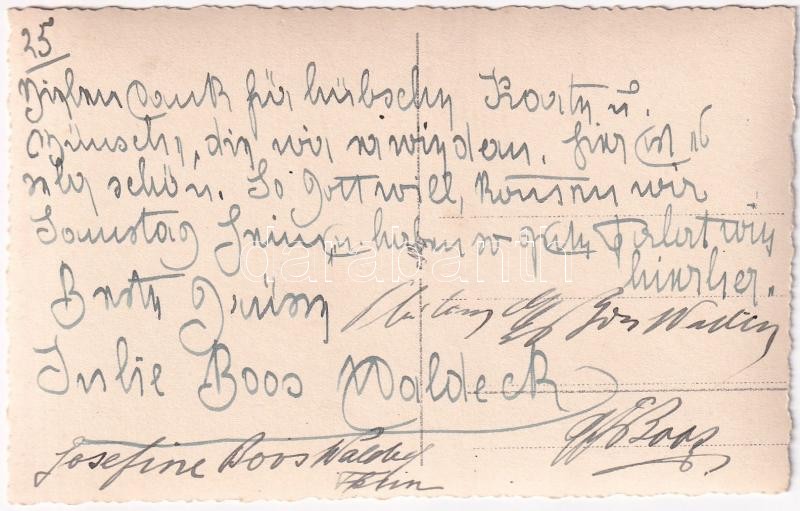 25
Vielen Dank für hübsche Karte u.
Wünsche, die wir erwidern. Hier ist es
sehr schön. So Gott will, kommen wir
Samstag heim u. haben so gute Fahrt wie
hierher.
Beste Grüsse
Boos
Julie Boos Waldeck
Josefine Boos Waldeck
Boos
darabanth